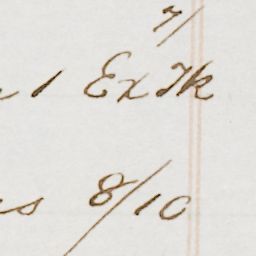 7/
1 Ex Tk
8/10